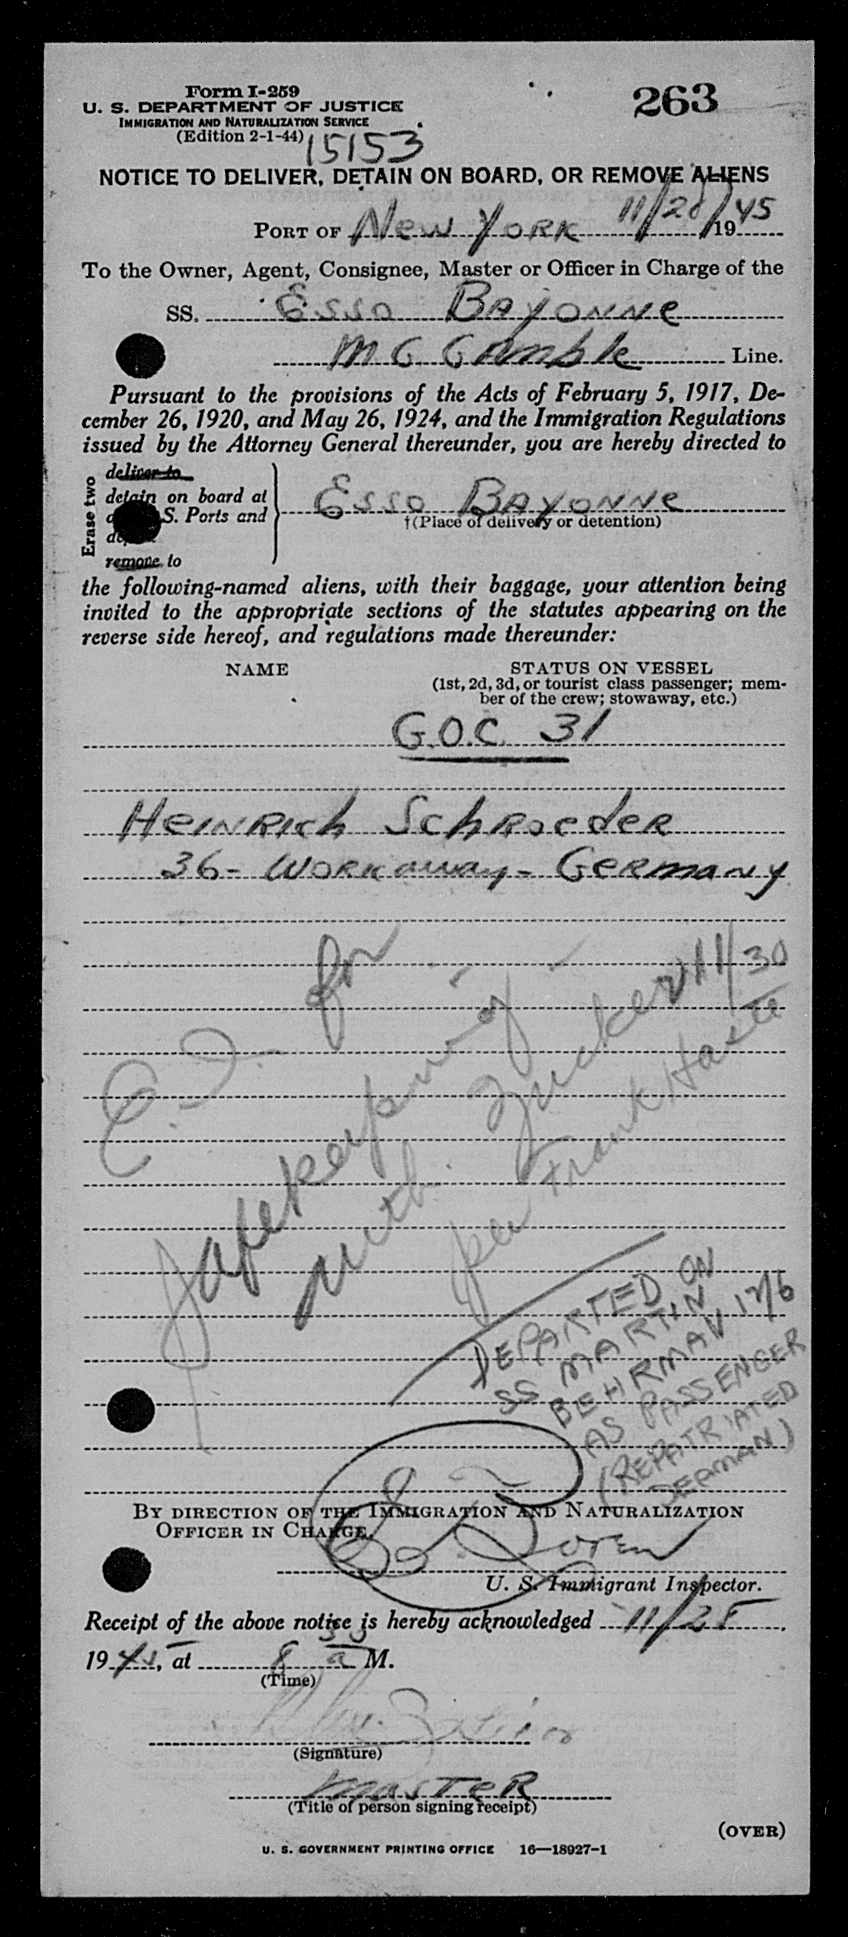 Form I-259
263
U. S. DEPARTMENT OF JUSTICE
IMMIGRATION AND NATURALIZATION SERVICE
(Edition 2-1-44)
15153
NOTICE TO DELIVER, DETAIN ON BOARD, OR REMOVE ALIENS
PORT OF New York 11/28/1945
To the Owner, Agent, Consignee, Master or Officer in Charge of the
SS. Esso Bayonne
Mc Gamble Line.
Pursuant to the provisions of the Acts of February 5, 1917, De-
cember 26, 1920, and May 26, 1924, and the Immigration Regulations
issued by the Attorney General thereunder, you are hereby directed to
Erase two
deliver to
detain on board at
S. Ports and
remove to
Esso Bayonne
†(Place of delivery or detention)
the following-named aliens, with their baggage, your attention being
invited to the appropriate sections of the statutes appearing on the
reverse side hereof, and regulations made thereunder:
NAME
STATUS ON VESSEL
(1st, 2d, 3d, or tourist class passenger; mem-
ber of the crew; stowaway, etc.)
G.O.C. 31
Heinrich Schroeder
36- Workaway- Germany
E.I. for
safekeeping
auth. Zucker 11/30
per Frank Haste
DEPARTED ON
SS MARTIN
BEHRMAN 12/6
AS PASSENGER
(REPATRIATED
SEAMAN)
BY DIRECTION OF THE IMMIGRATION AND NATURALIZATION
OFFICER IN CHARGE.
U. S. Immigrant Inspector.
Receipt of the above notice is hereby acknowledged 11/28,
1945, at 8 a M.
(Time)
(Signature)
Master
(Title of person signing receipt)
(OVER)
U. S. GOVERNMENT PRINTING OFFICE 16—18927-1